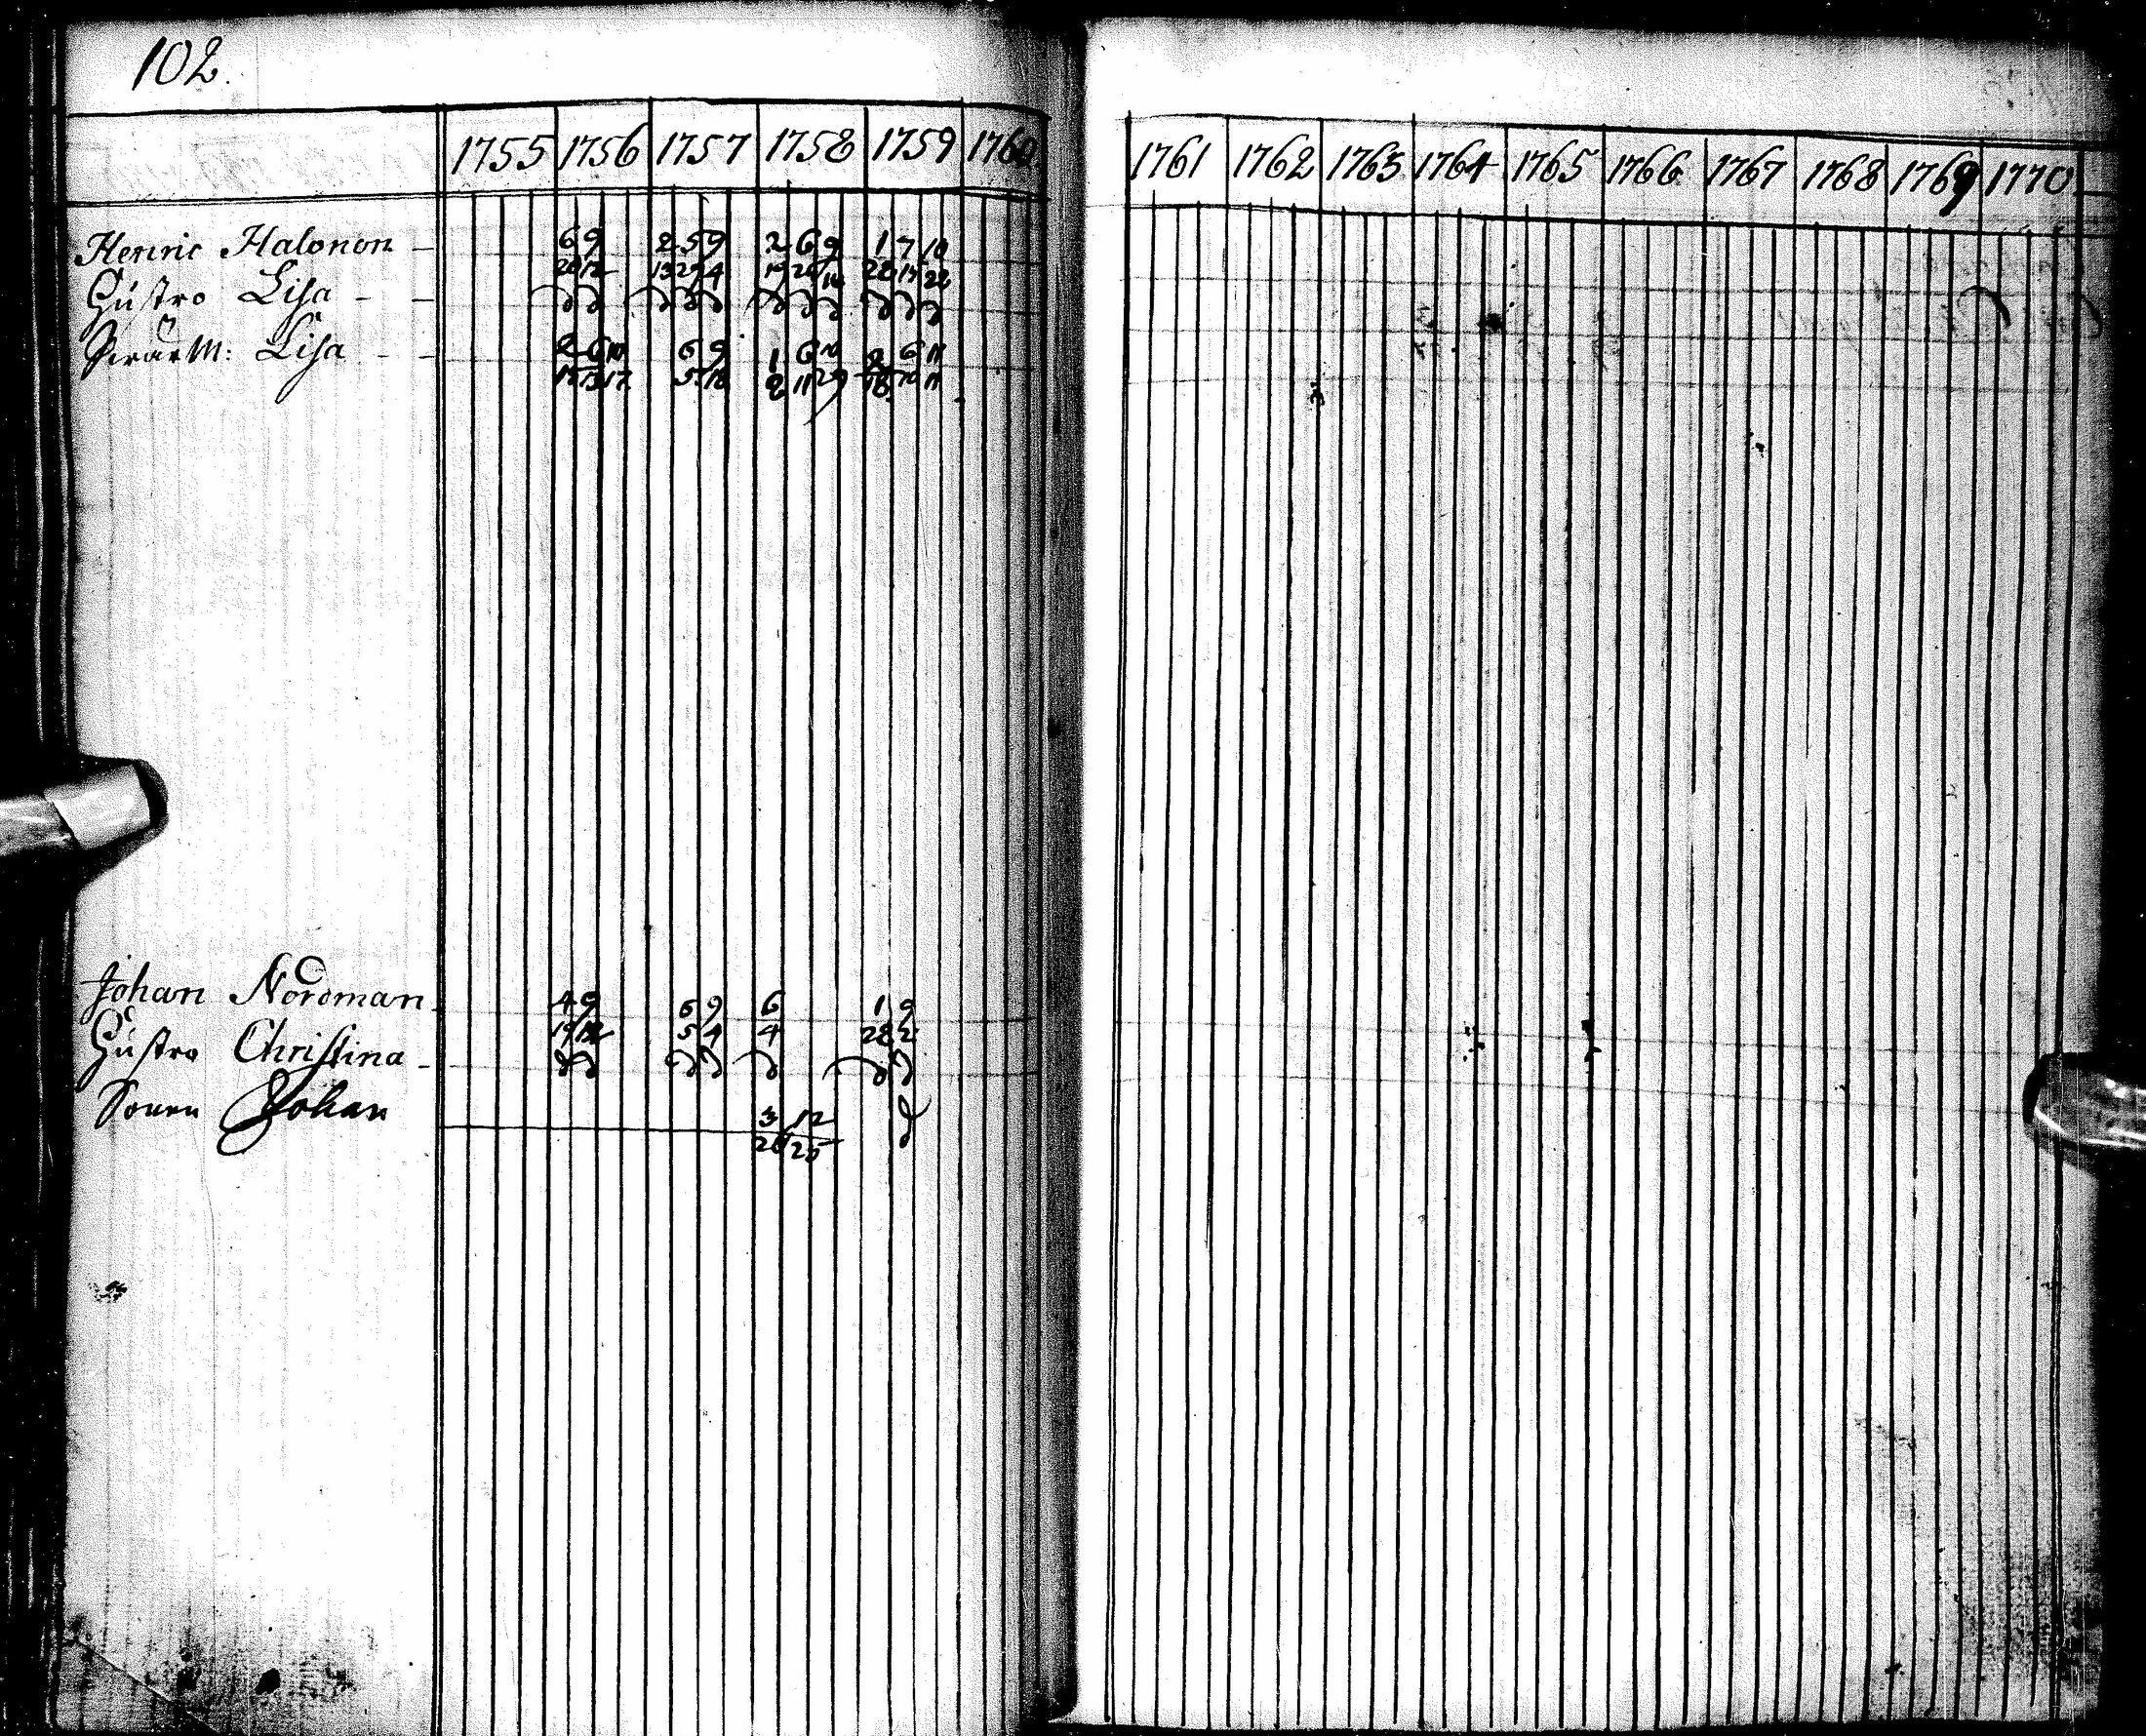 102.
1755 1756 1757 1758 1759 1760 1761 1762 1763 1764 1765 1766 1767 1768 1769 1770
Henric Halonon 6 9 2 5 9 2 6 9 1 7 10
13 29 4 28 22
Hustro Lisa
Lisa 2 6 10 6 9 1 6 10 2 6 11
5 18 2 11 29 18 11
Johan Nordman 4 9 6 9 6 1 9
19 5 4 4 28 2
Hustro Christina
Sonen Johan 3 12
26 25